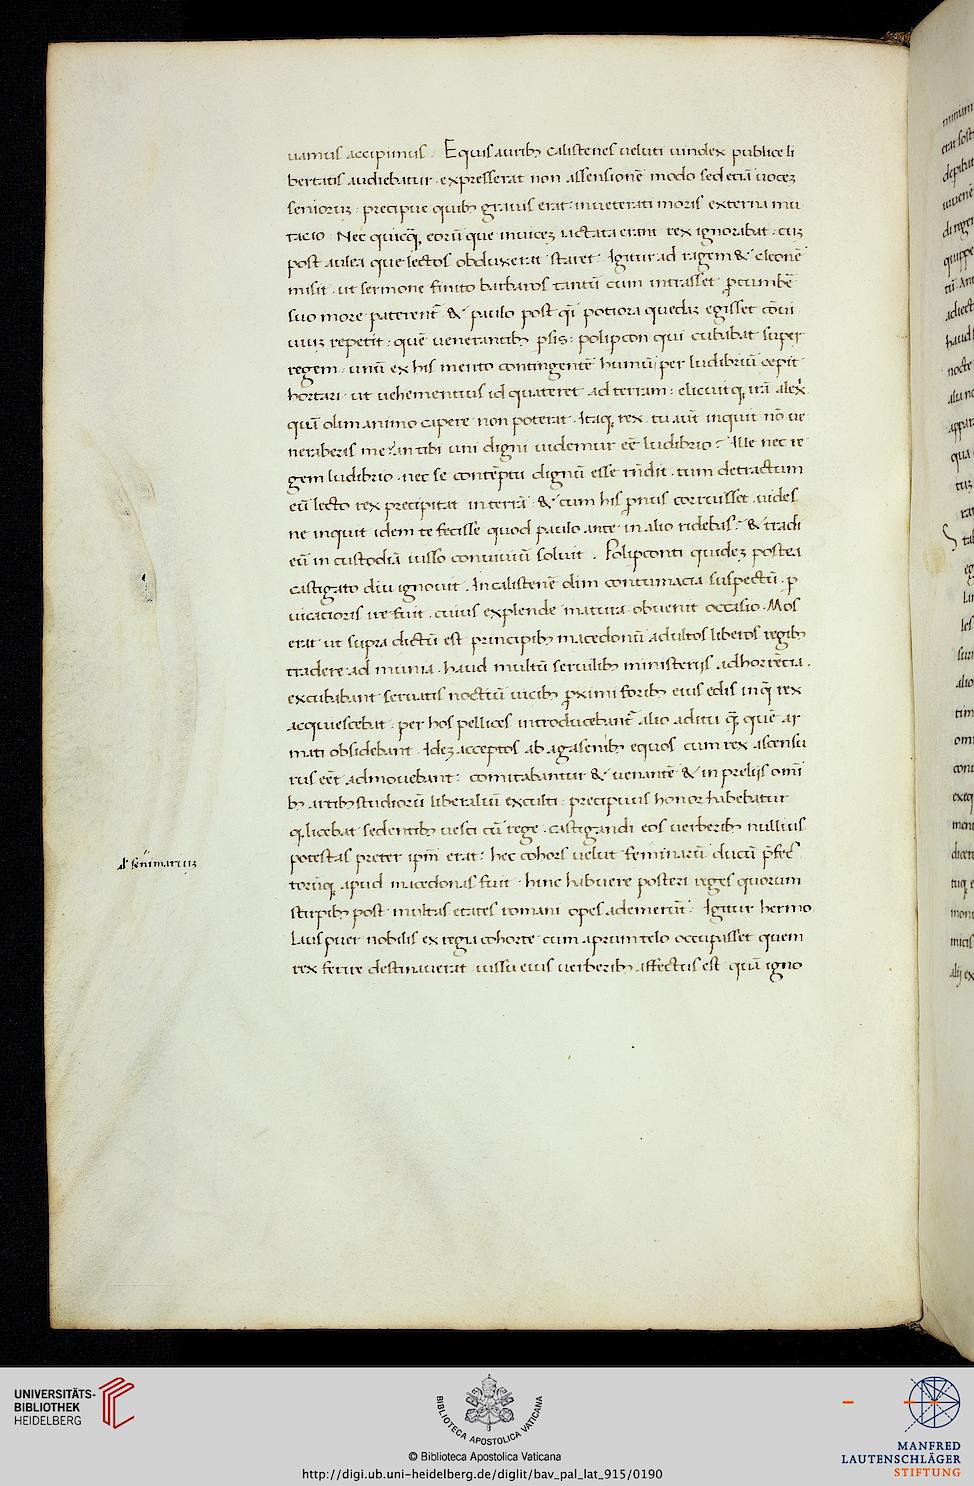 uamus accipimus. Equis aurib; calistenes ueluti uindex publice li
bertatis audiebatur. expresserat non assensionē modo sed etiā uocez
seniorūz: precipue quib; grauis erat: inueterati moris externa mu
tacio. Nec quicq̄, eorū que inuicez iactata erant rex ignorabat. cuz
post aulea que lectos obduxerat staret. Igitur ad ragem & cleonē
misit. ut sermone finito barbaros tantū cum intrasset ꝓcumbē
suo more paterent̄ & paulo post q̄i potiora quedaz egisset cōui
uiuz repetit: quē uenerantib; psis: polipcon qui cubabat super
regem: unū ex his mento contingentē humū per ludibriū cepit
hortari. ut uehementius id quateret ad terram: elicuitq, irā alex̄.
quā olim animo capere non poterat. Itaq, rex. tu aūt inquit nō ue
neraberis me? an tibi uni digni uidemur eē ludibrio? Ille nec re
gem ludibrio. nec se contēptu dignū esse rn̄dit. tum detractum
eū lecto rex precipitat in terrā. & cum his ꝓnus corruisset. uides
ne inquit idem te fecisse quod paulo ante in alio ridebas? & tradi
eū in custodiā iusso conuiuiū soluit. Polipconti quidez postea
castigato diu ignouit. In calistenē olim contumacia suspectū. p
uicacioris ire fuit. cuius explende matura obuenit occasio. Mos
erat ut supra dictū est principib; macedonū adultos liberos regib;
tradere ad munia. haud multū seruilib; ministerijs adhorrētia.
excubabant seruatis noctiū uicib; ꝓximi forib; eius edis in q̄ rex
acquiescebat: per hos pellices introducebant̄ alio aditu q̄ quē ar
mati obsidebant. Idez acceptos ab agasonib; equos cum rex ascensu
rus eēt admouebant: comitabantur & uenantē & in prelijs omī
b; artib; studiorū liberaliū exculti: precipuus honor habebatur
q, licebat sedentib; uesci cū rege. castigandi eos uerberib; nullius
potestas preter ipm̄ erat: hec cohors uelut feminarū ducū p̄fec̄
torūq, apud macedonas fuit. hinc habuere posteri reges quorum
stirpib; post multas etates romani opes ademerūt. Igitur hermo
laus puer nobilis ex regia cohorte cum aprum telo occupasset quem
rex ferire destinauerat iussu eius uerberib; affectus est. quā igno
al' seminariuz
UNIVERSITÄTS-
BIBLIOTHEK
HEIDELBERG
BIBLIOTECA APOSTOLICA VATICANA
© Biblioteca Apostolica Vaticana
http://digi.ub.uni-heidelberg.de/diglit/bav_pal_lat_915/0190
MANFRED
LAUTENSCHLÄGER
STIFTUNG